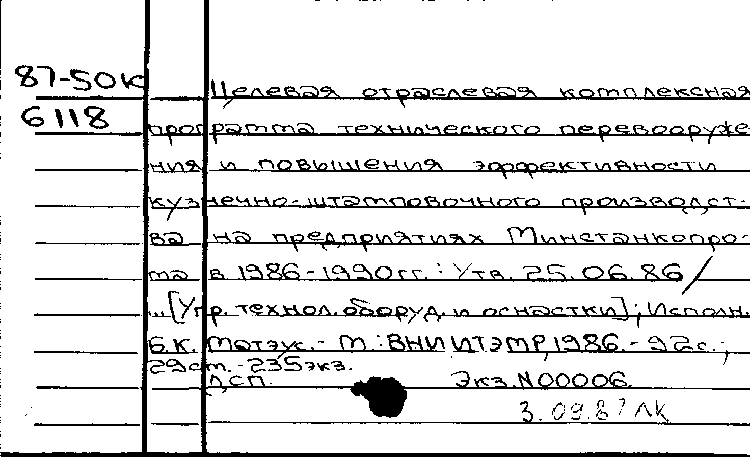 87-50к Целевая отраслевая комплексная
6118 программа технического перевооруже
ния и повышения эффективности
кузнечно-штамповочного производст-
ва на предприятиях Минстанкопро-
ма в 1986-1990гг.: Утв. 25.06.86/
...[Упр. технол. оборуд. и оснастки]; Исполн.
Б.К. Матэус.- М.: ВНИИТЭМР, 1986.- 92с.;
29см.-235экз.
ДСП. Экз. N00006.
3.09.87 ЛК